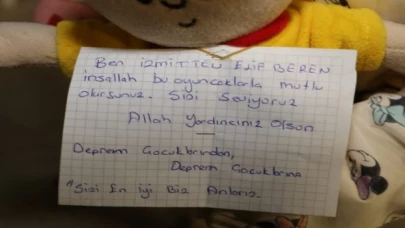 Ben izmiTTEN ELİF BEREN
inşallah bu oyuncaklarla mutlu
olursunuz. Sizi Seviyoruz
Allah Yardımcınız Olsun
Deprem Çocuklarından,
Deprem Çocuklarına
"Sizi En iyi Biz Anlarız.